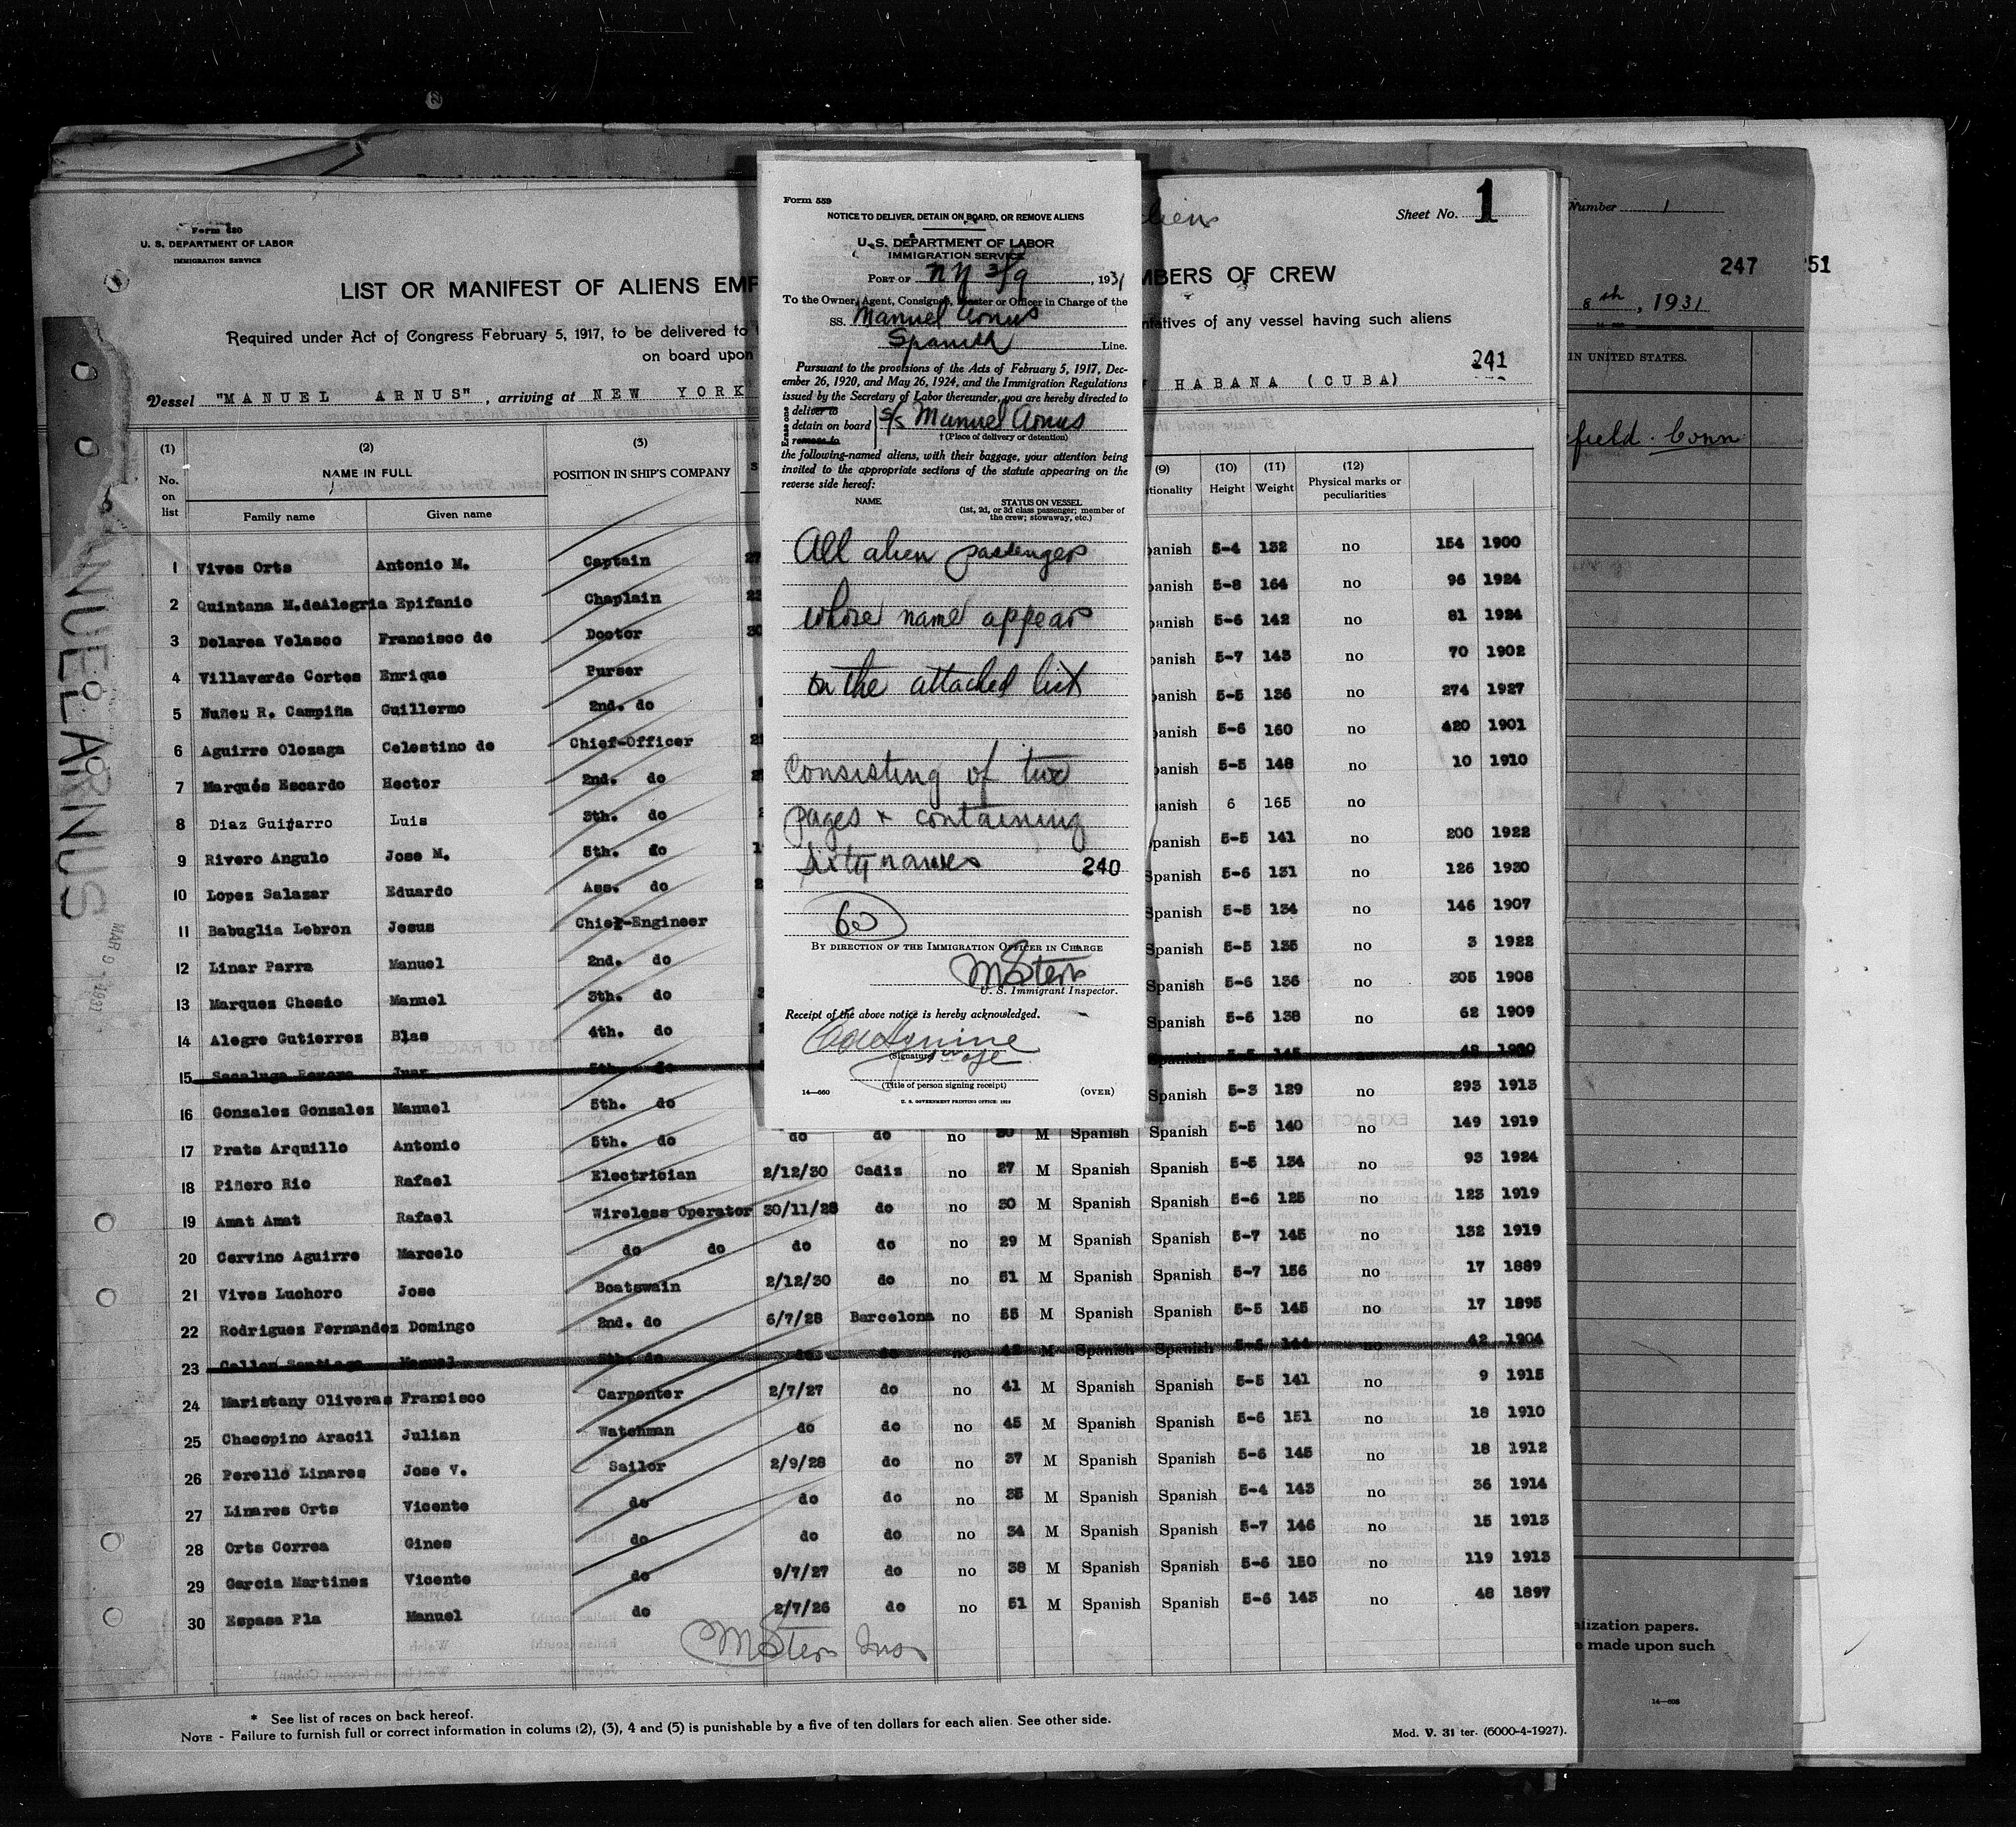 Form 680
U. S. DEPARTMENT OF LABOR
IMMIGRATION SERVICE
Sheet No. 1
LIST OR MANIFEST OF ALIENS EMP
MBERS OF CREW
Required under Act of Congress February 5, 1917, to be delivered to
ntatives of any vessel having such aliens
on board upon
241
Vessel "MANUEL ARNUS", arriving at NEW YORK
HABANA (CUBA)
(1) (2) (3) (9) (10) (11) (12)
No. on list NAME IN FULL POSITION IN SHIP'S COMPANY tionality Height Weight Physical marks or peculiarities
Family name Given name
1 Vives Orts Antonio M. Captain 27 panish 5-4 132 no 154 1900
2 Quintana M.deAlegria Epifanio Chaplain panish 5-8 164 no 96 1924
3 Dolarea Velasco Francisco de Doctor 30 panish 5-6 142 no 81 1924
4 Villaverde Cortes Enrique Purser panish 5-7 143 no 70 1902
5 Nuñez R. Campiña Guillermo 2nd. do panish 5-5 136 no 274 1927
6 Aguirre Olozaga Celestino de Chief-Officer panish 5-6 160 no 420 1901
7 Marqués Escardo Hector 2nd. do panish 5-5 148 no 10 1910
8 Diaz Guijarro Luis 3th. do panish 6 165 no
9 Rivero Angulo Jose M. 5th. do panish 5-5 141 no 200 1922
10 Lopez Salazar Eduardo Ass. do Spanish 5-6 131 no 126 1930
11 Babuglia Lebron Jesus Chief-Engineer Spanish 5-5 134 no 146 1907
12 Linar Parra Manuel 2nd. do Spanish 5-5 135 no 3 1922
13 Marques Chesio Manuel 3th. do Spanish 5-6 136 no 305 1908
14 Alegre Gutierres Blas 4th. do Spanish 5-6 138 no 62 1909
15 Juan 5th. do Spanish 5-5 145 no 48 1900
16 Gonzales Gonzales Manuel 5th. do Spanish 5-3 129 no 293 1913
17 Prats Arquillo Antonio 5th. do do do no 30 M Spanish Spanish 5-5 140 no 149 1919
18 Piñero Rio Rafael Electrician 2/12/30 Cadiz no 27 M Spanish Spanish 5-5 134 no 93 1924
19 Amat Amat Rafael Wireless Operator 30/11/28 do no 30 M Spanish Spanish 5-6 125 no 123 1919
20 Cervino Aguirre Marcelo do do do do no 29 M Spanish Spanish 5-7 145 no 132 1919
21 Vives Luchoro Jose Boatswain 2/12/30 do no 51 M Spanish Spanish 5-7 156 no 17 1889
22 Rodriguez Fernandez Domingo 2nd. do 6/7/28 Barcelona no 55 M Spanish Spanish 5-5 145 no 17 1895
23 Manuel 3th. do do do no M Spanish Spanish 5-6 144 no 42 1904
24 Maristany Oliveras Francisco Carpenter 2/7/27 do no 41 M Spanish Spanish 5-5 141 no 9 1915
25 Chacopino Aracil Julian Watchman do do no 45 M Spanish Spanish 5-6 151 no 18 1910
26 Perelló Linares Jose V. Sailor 2/9/28 do no 37 M Spanish Spanish 5-6 145 no 18 1912
27 Linares Orts Vicente do do do no 35 M Spanish Spanish 5-4 143 no 36 1914
28 Orts Correa Gines do do do no 34 M Spanish Spanish 5-7 146 no 15 1913
29 Garcia Martinez Vicente do 9/7/27 do no 38 M Spanish Spanish 5-6 150 no 119 1913
30 Espasa Pla Manuel do 2/7/26 do no 51 M Spanish Spanish 5-6 143 no 48 1897
M Stern Ins
* See list of races on back hereof.
NOTE - Failure to furnish full or correct information in colums (2), (3), 4 and (5) is punishable by a five of ten dollars for each alien. See other side.
Mod. V. 31 ter. (6000-4-1927).
Form 559
NOTICE TO DELIVER, DETAIN ON BOARD, OR REMOVE ALIENS
U. S. DEPARTMENT OF LABOR
IMMIGRATION SERVICE
PORT OF NY 3/9, 1931
To the Owner, Agent, Consignee, Master or Officer in Charge of the
SS. Manuel Arnus
Spanish Line.
Pursuant to the provisions of the Acts of February 5, 1917, Dec-
ember 26, 1920, and May 26, 1924, and the Immigration Regulations
issued by the Secretary of Labor thereunder, you are hereby directed to
Erase one
deliver to
detain on board S/S Manuel Arnus
remove to
†(Place of delivery or detention)
the following-named aliens, with their baggage, your attention being
invited to the appropriate sections of the statute appearing on the
reverse side hereof:
NAME STATUS ON VESSEL
(1st, 2d, or 3d class passenger; member of
the crew; stowaway, etc.)
All alien passengers
whose name appears
on the attached list
Consisting of two
pages + containing
sixty names 240
60
BY DIRECTION OF THE IMMIGRATION OFFICER IN CHARGE
M Stern
U. S. Immigrant Inspector.
Receipt of the above notice is hereby acknowledged.
(Signature)
(Title of person signing receipt)
14—660 (OVER)
U. S. GOVERNMENT PRINTING OFFICE: 1929
MANUEL ARNUS
MAR 9 1931
Number 1
247
251
8th, 1931
IN UNITED STATES.
field. Conn
alization papers.
e made upon such